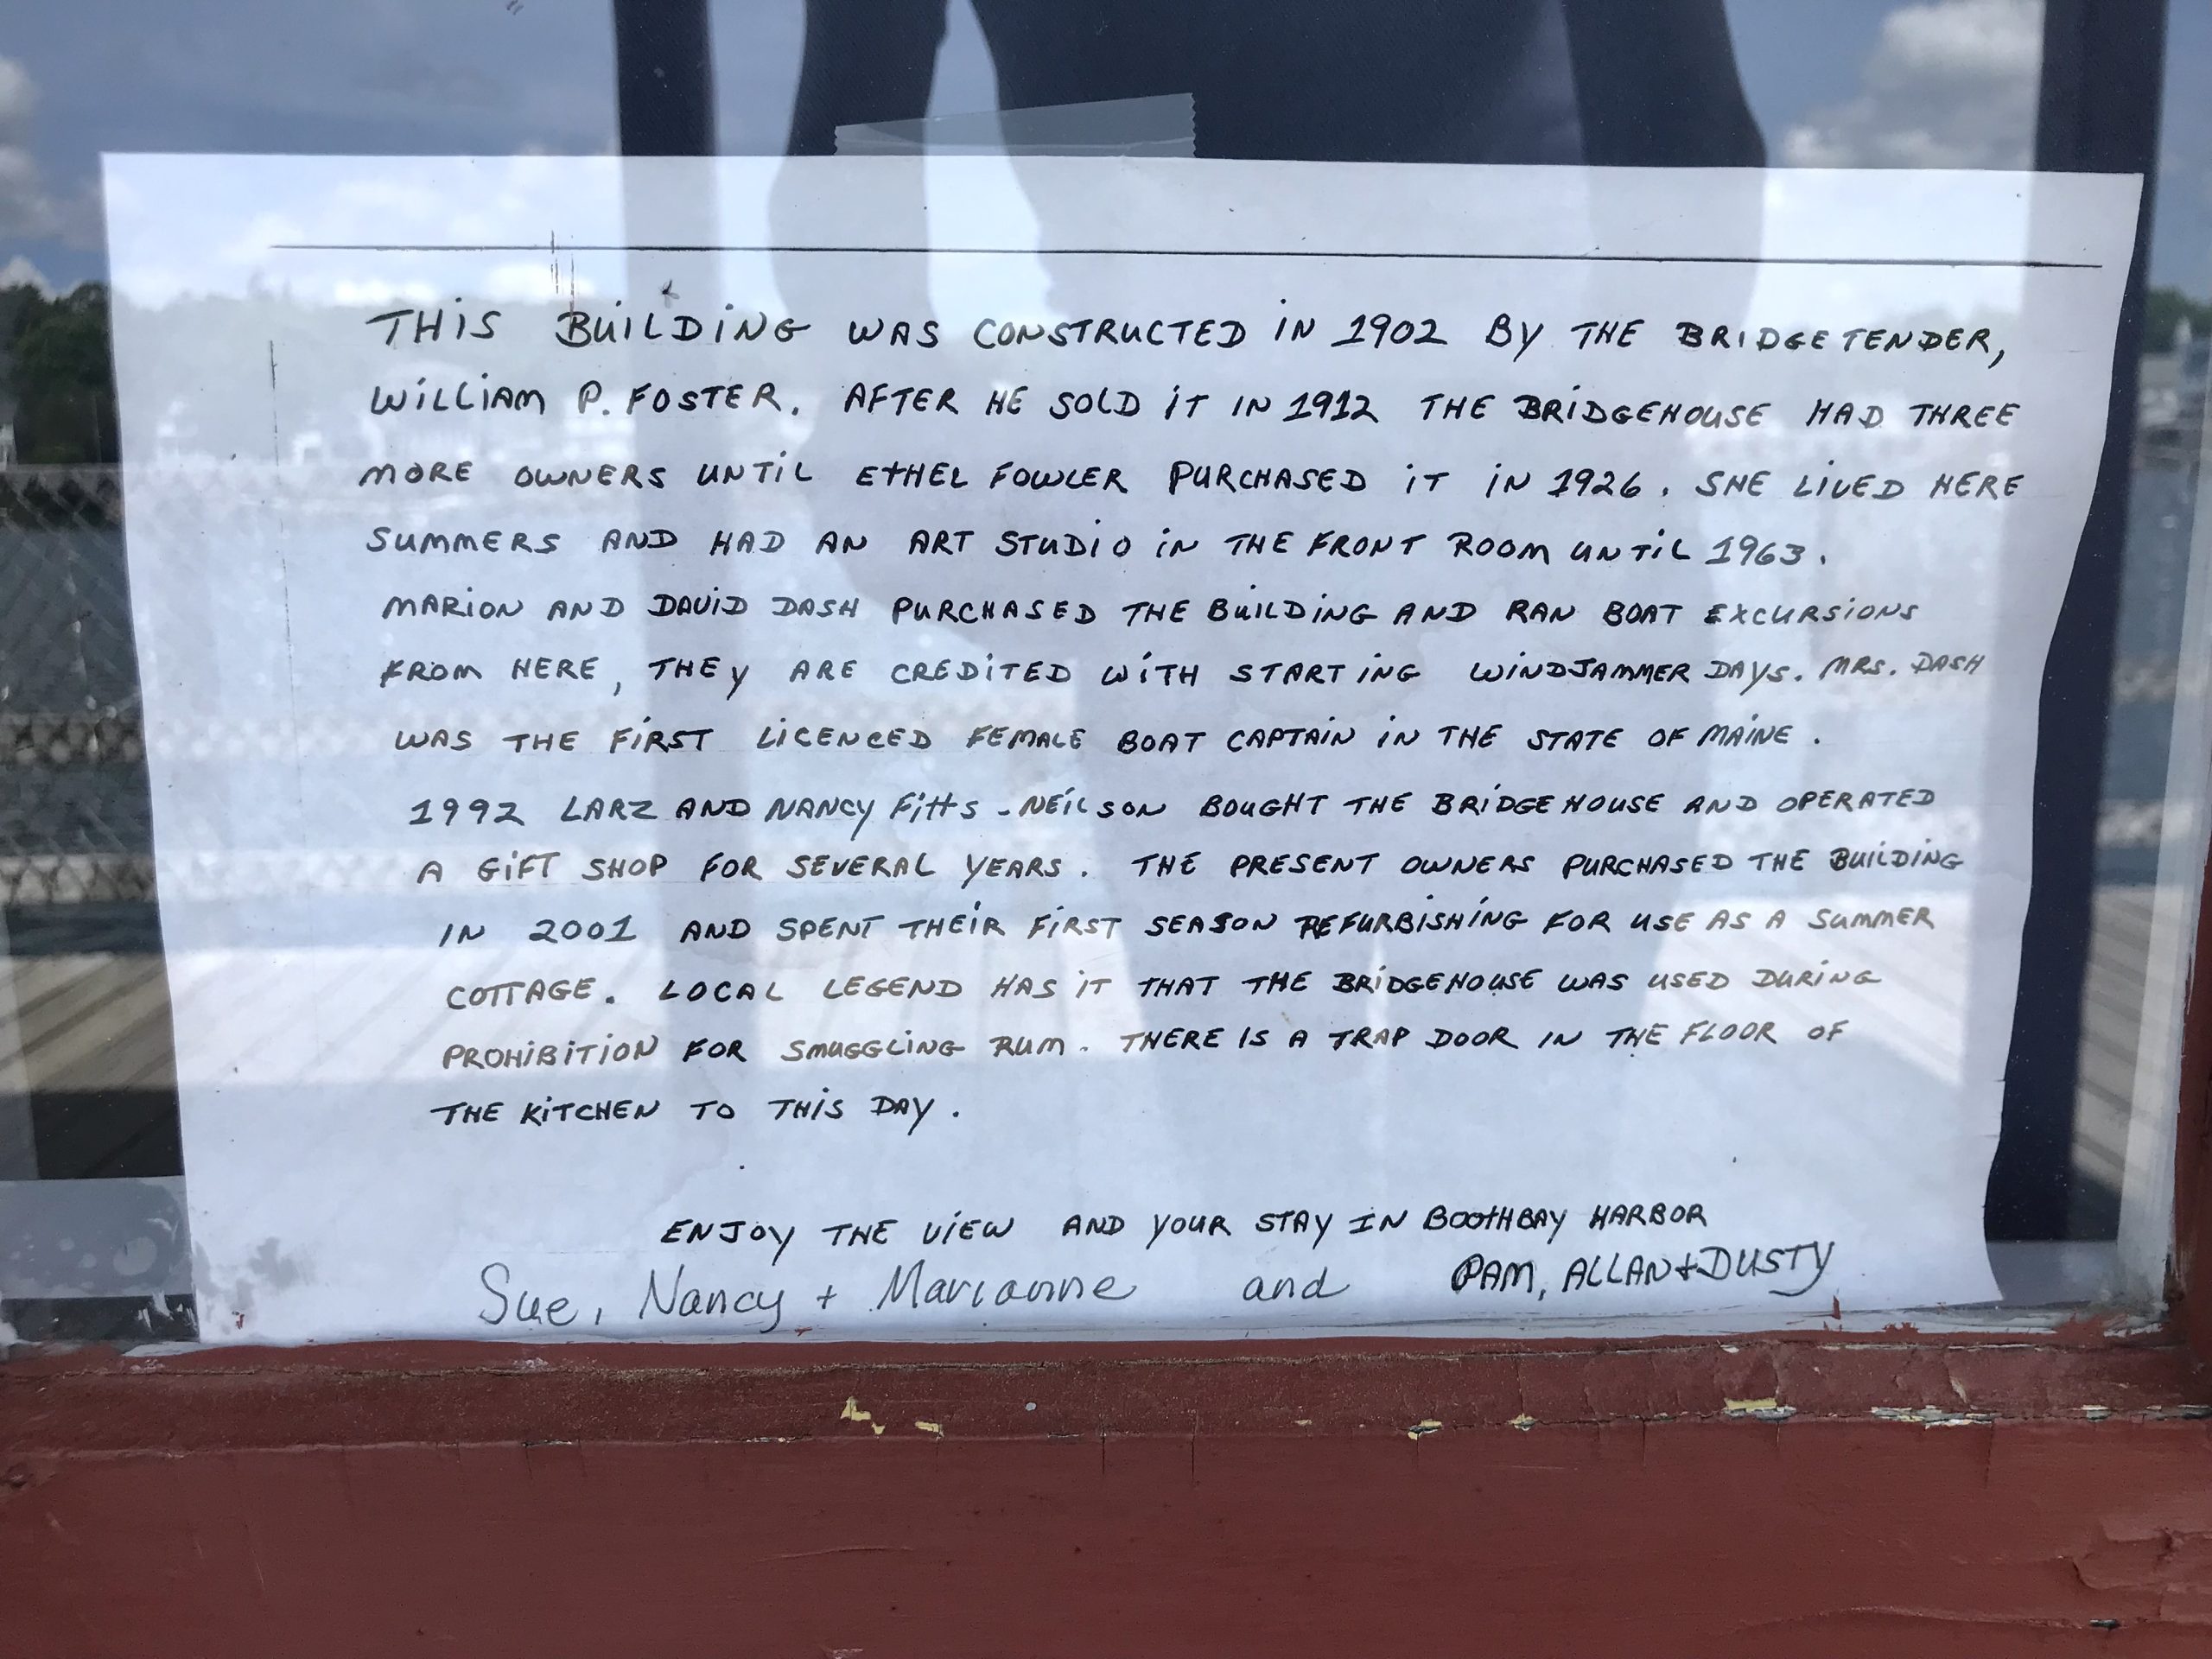 THIS BUILDING WAS CONSTRUCTED IN 1902 BY THE BRIDGETENDER,
WILLIAM P. FOSTER. AFTER HE SOLD IT IN 1912 THE BRIDGEHOUSE HAD THREE
MORE OWNERS UNTIL ETHEL FOWLER PURCHASED IT IN 1926. SHE LIVED HERE
SUMMERS AND HAD AN ART STUDIO IN THE FRONT ROOM UNTIL 1963.
MARION AND DAVID DASH PURCHASED THE BUILDING AND RAN BOAT EXCURSIONS
FROM HERE, THEY ARE CREDITED WITH STARTING WINDJAMMER DAYS. MRS. DASH
WAS THE FIRST LICENCED FEMALE BOAT CAPTAIN IN THE STATE OF MAINE.
1992 LARZ AND NANCY FITTS-NEILSON BOUGHT THE BRIDGEHOUSE AND OPERATED
A GIFT SHOP FOR SEVERAL YEARS. THE PRESENT OWNERS PURCHASED THE BUILDING
IN 2001 AND SPENT THEIR FIRST SEASON REFURBISHING FOR USE AS A SUMMER
COTTAGE. LOCAL LEGEND HAS IT THAT THE BRIDGEHOUSE WAS USED DURING
PROHIBITION FOR SMUGGLING RUM. THERE IS A TRAP DOOR IN THE FLOOR OF
THE KITCHEN TO THIS DAY.
ENJOY THE VIEW AND YOUR STAY IN BOOTHBAY HARBOR
Sue, Nancy + Marianne and PAM, ALLAN + DUSTY